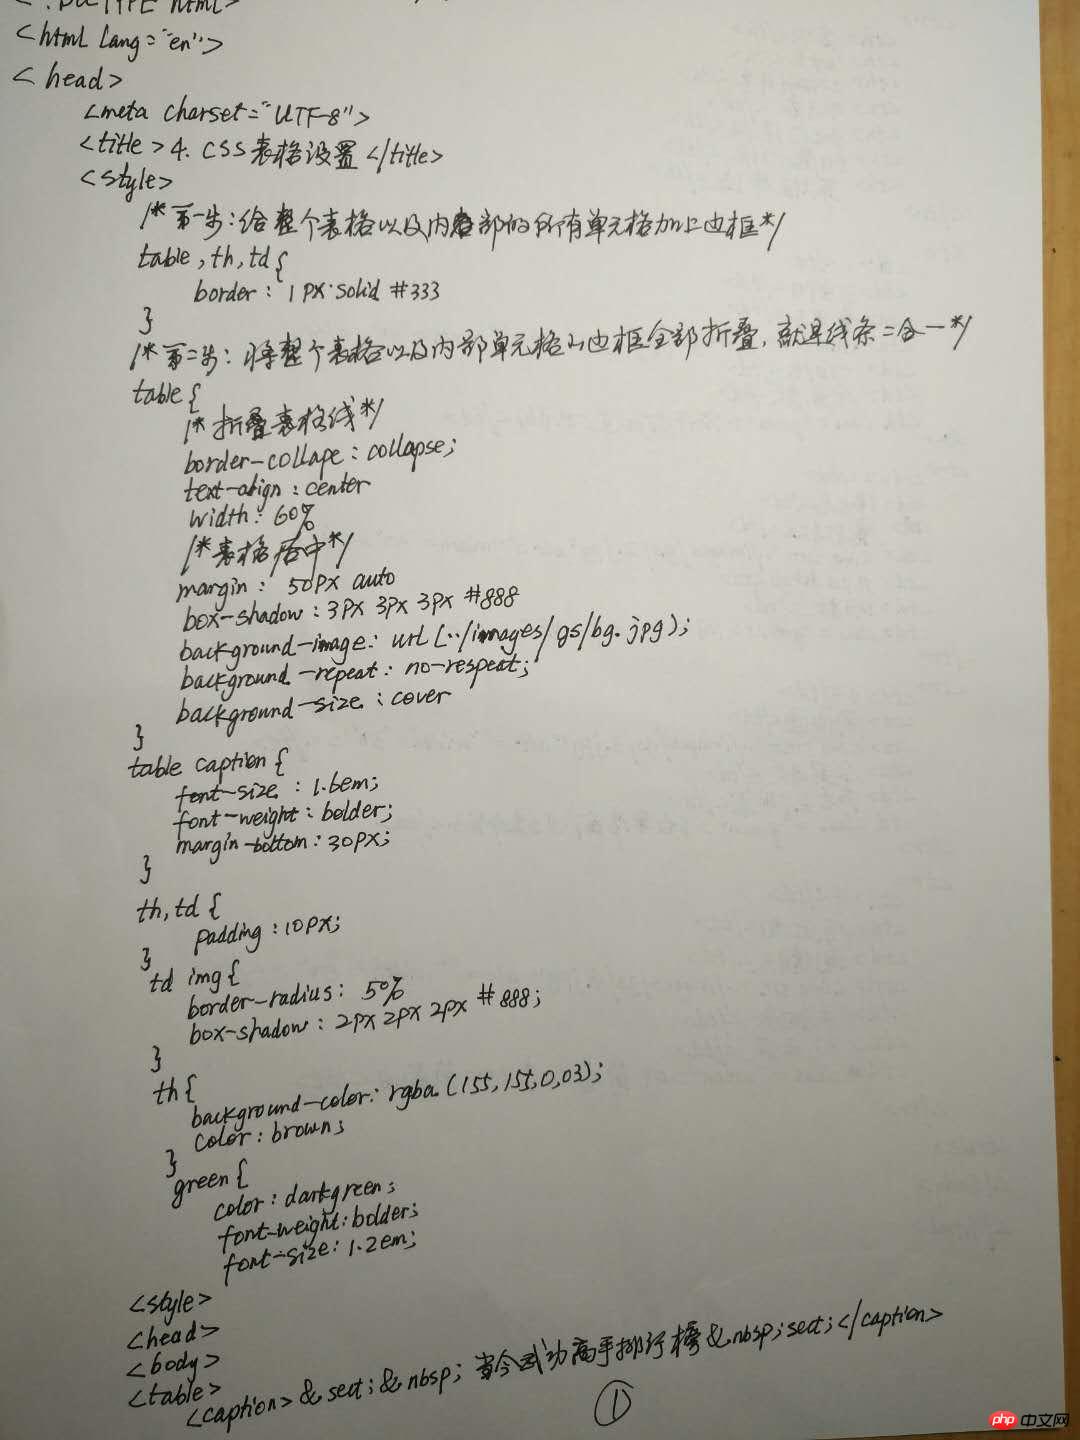 <!DOCTYPE html>
<html lang="en">
<head>
<meta charset="UTF-8">
<title>4. CSS表格设置</title>
<style>
/*第一步:给整个表格以及内部的所有单元格加上边框*/
table,th,td{
border: 1px solid #333
}
/*第二步:将整个表格以及内部单元格的边框全部折叠,就是线条二合一*/
table{
/*折叠表格线*/
border-collape: collapse;
text-align: center
width: 60%
/*表格居中*/
margin: 50px auto
box-shadow: 3px 3px 3px #888
background-image: url(../images/gs/bg.jpg);
background-repeat: no-respeat;
background-size: cover
}
table caption{
font-size: 1.6em;
font-weight: bolder;
margin-bottom: 30px;
}
th,td{
padding: 10px;
}
td img{
border-radius: 50%
box-shadow: 2px 2px 2px #888;
}
th{
background-color: rgba(155,155,0,03);
color: brown;
}
green{
color: darkgreen;
font-weight: bolder;
font-size: 1.2em;
<style>
<head>
<body>
<table>
<caption>& sect;& nbsp;当今武功高手排行榜& nbsp;sect;</caption>
①
php 中文网